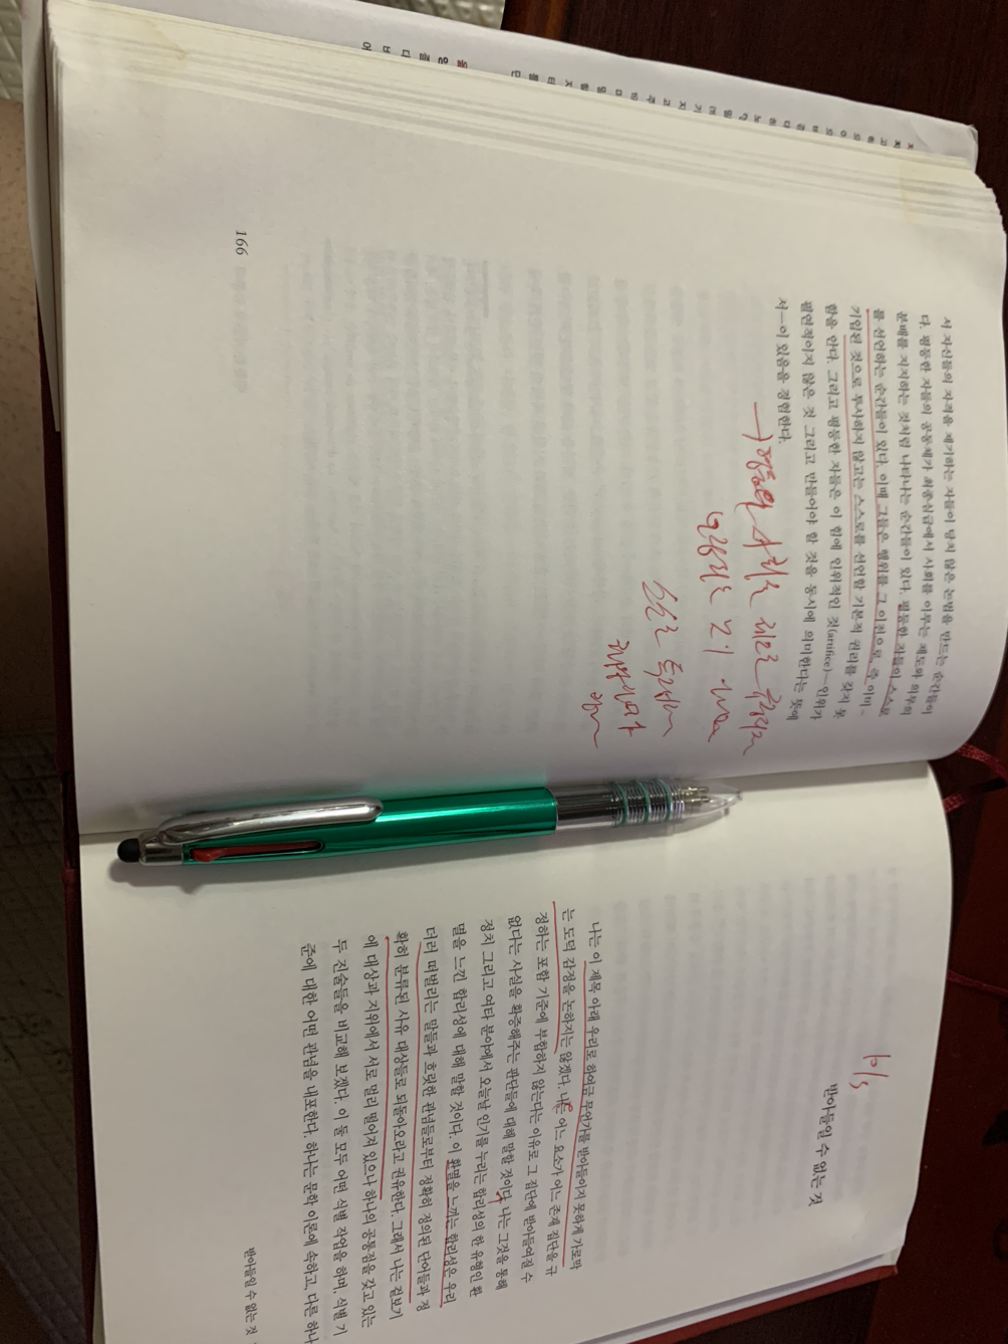 서 자신들의 자격을 제기하는 자들이 맞지 않은 논법을 만드는 순간들이
다. 평등한 자들의 공동체가 최종심급에서 사회를 이루는 제도와 의무의
분배를 지지하는 것처럼 나타나는 순간들이 있다. 평등한 자들의 스스로
를 선언하는 순간들이 있다. 이때 그들은 행위를 그 이전으로 즉 이미-
기입된 것으로 투사하지 않고는 스스로를 선언할 기본적 권리를 갖지 못
함을 안다. 그리고 평등한 자들은 이 힘에 인위적인 것(artifice)—인위가
필연적이지 않은 것 그리고 만들어야 할 것을 동시에 의미한다는 뜻에
서—이 있음을 경험한다.
166
10/5
받아들일 수 없는 것
나는 이 제목 아래 우리로 하여금 무언가를 받아들이지 못하게 가로막
는 도덕 감정을 논하지는 않겠다. 나는 어느 요소가 어느 존재 집단을 규
정하는 포함 기준에 부합하지 않는다는 이유로 그 집단에 받아들여질 수
없다는 사실을 확증해주는 판단들에 대해 말할 것이다. 나는 그것을 통해
정치 그리고 여타 분야에서 오늘날 인기를 누리는 합리성의 한 유형인 환
멸을 느낀 합리성에 대해 말할 것이다. 이 환멸을 느끼는 합리성은 우리
더러 떠벌리는 말들과 흐릿한 관념들로부터 정확히 정의된 단어들과 정
확히 분류된 사유 대상들로 되돌아오라고 권유한다. 그래서 나는 겉보기
에 대상과 지위에서 서로 멀리 떨어져 있으나 하나의 공통점을 갖고 있는
두 진술들을 비교해 보겠다. 이 둘 모두 어떤 식별 작업을 하며, 식별 기
준에 대한 어떤 관념을 내포한다. 하나는 문학 이론에 속하고, 다른 하나
받아들일 수 없는 것